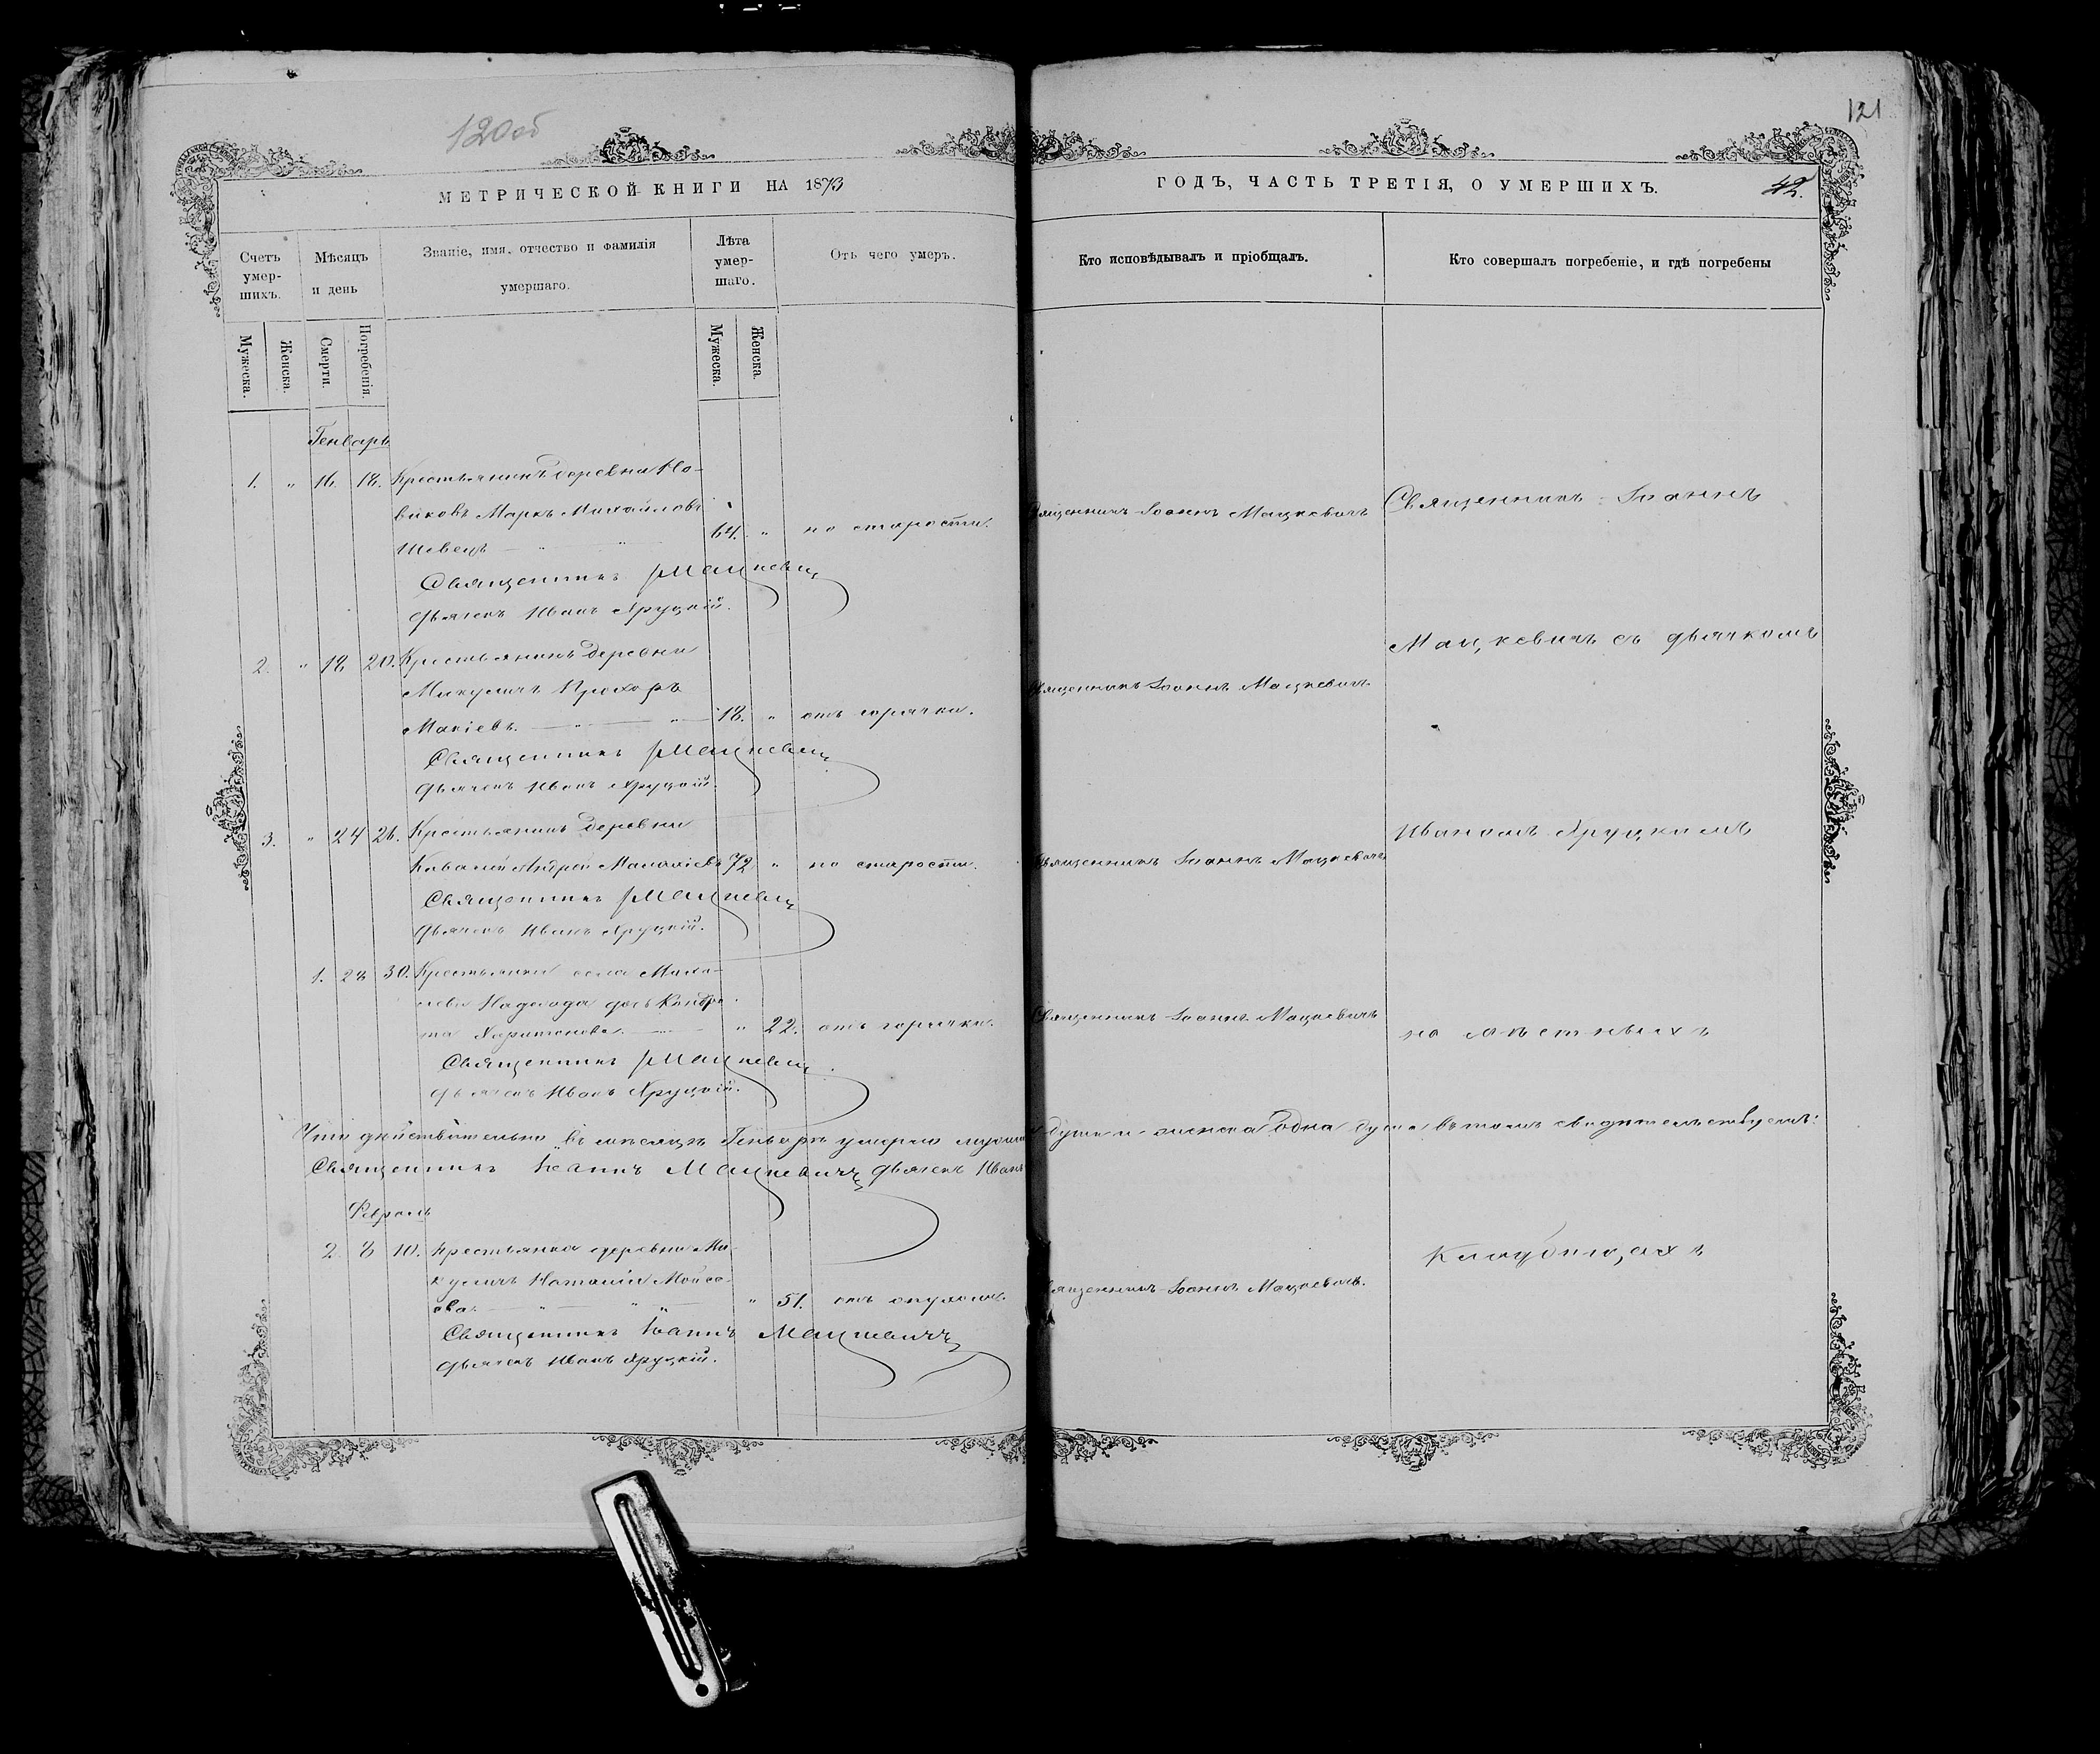 120об
121
МЕТРИЧЕСКОЙ КНИГИ НА 1873
ГОДЪ, ЧАСТЬ ТРЕТІЯ, О УМЕРШИХЪ.
42.
Счетъ умер-шихъ.
Мѣсяцъ и день
Званіе, имя, отчество и фамилія умершаго.
Лѣта умер-шаго.
Отъ чего умеръ.
Кто исповѣдывалъ и пріобщалъ.
Кто совершалъ погребеніе, и гдѣ погребены
Мужеска.
Женска.
Смерти.
Погребенія.
Мужеска.
Женска.
Генварь
1. " 16. 18. Крестьянинъ деревни Но-
виковъ Маркъ Михайловъ
Шевецъ 64. " по старости. Священникъ Іоаннъ Мацкевичъ
Священникъ Мацкевичъ
Дьячекъ Иванъ Хруцкій.
2. " 18 20. Крестьянинъ деревни
Микуличъ Прохоръ
Макіевъ. 18. " отъ горячки. Священникъ Іоаннъ Мацкевичъ
Священникъ Мацкевичъ
Дьячекъ Иванъ Хруцкій.
3. " 24 26. Крестьянинъ деревни
Андрей 72 " по старости. Священникъ Іоаннъ Мацкевичъ
Священникъ Мацкевичъ
Дьячекъ Иванъ Хруцкій.
1. 28 30. села
Кондра-
та Харитонова " 22. отъ горячки. Священникъ Іоаннъ Мацкевичъ
Священникъ Мацкевичъ
Дьячекъ Иванъ Хруцкій.
Что дѣйствительно въ мѣсяцѣ Генварѣ умерло души и женска одна душа въ томъ свидѣтельствуемъ:
Священникъ Іоаннъ Мацкевичъ Дьячекъ Иванъ
Февраль
2. 8 10. Крестьянка деревни Ми-
куличъ Наталія Мойсе-
ева " 51. отъ опухоли. Священникъ Іоаннъ Мацкевичъ.
Священникъ Іоаннъ Мацкевичъ
Дьячекъ Иванъ Хруцкій.
Священникъ Іоаннъ
Мацкевичъ съ дьячкомъ
Иваномъ Хруцкимъ
на мѣстныхъ
Кладбищахъ